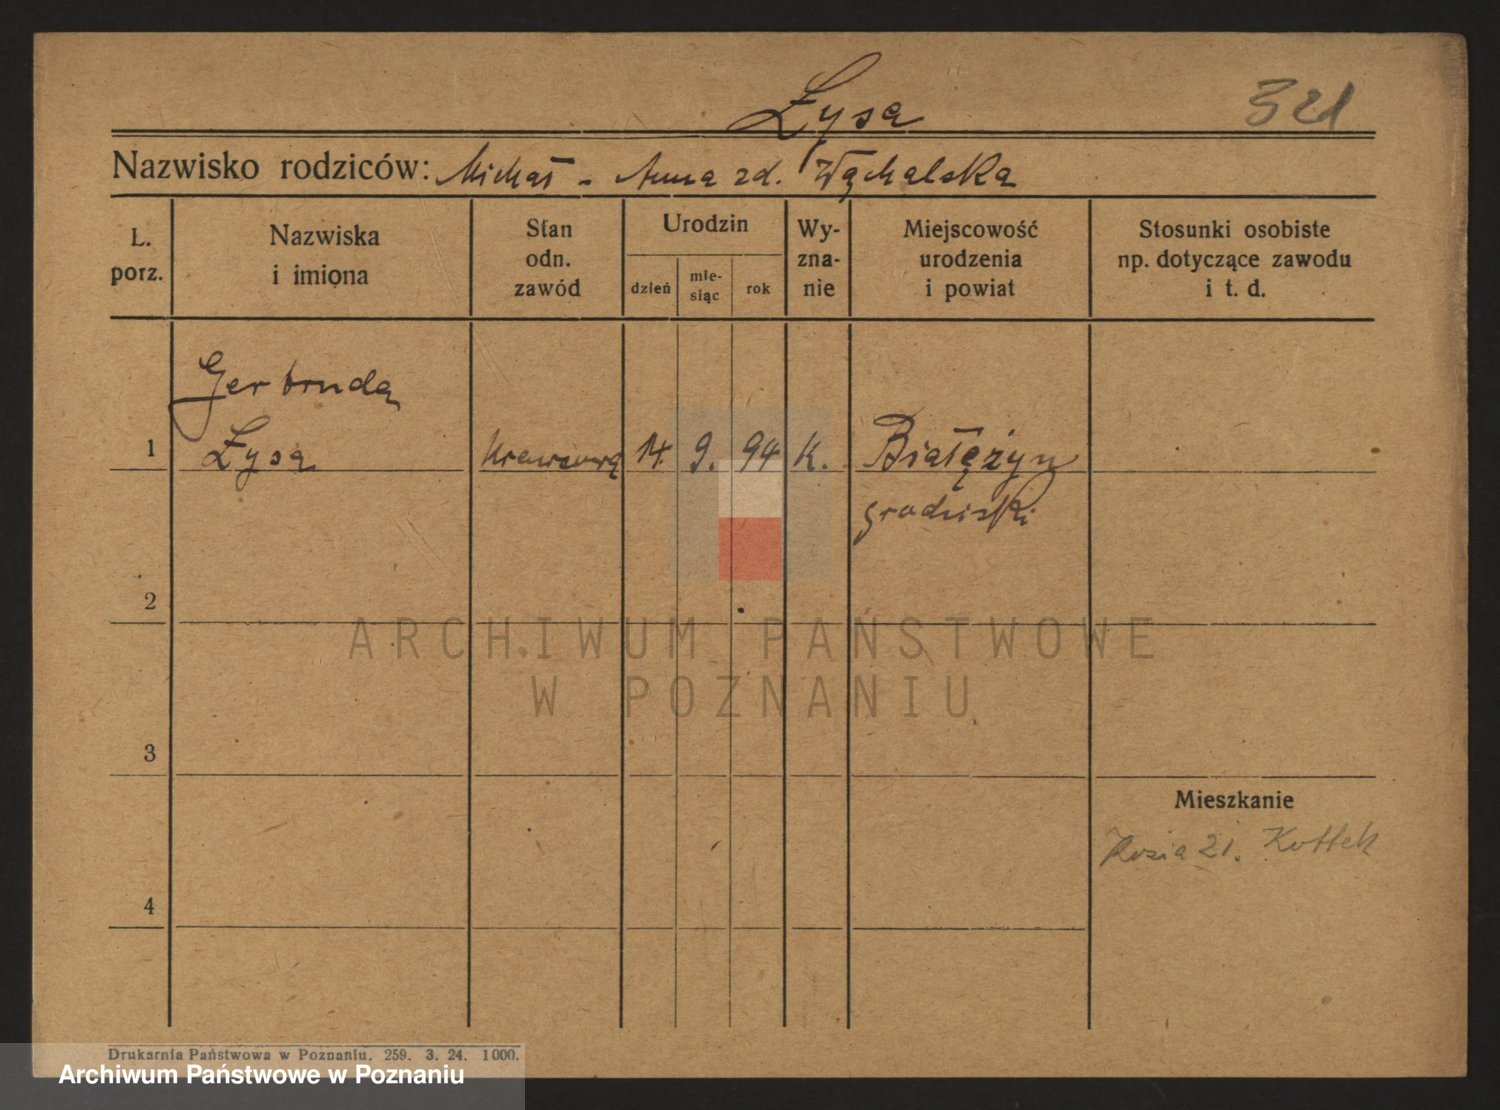 Łysa
321
Nazwisko rodziców: Michał - Anna zd. Wąchalska
L. porz.
Nazwiska i imiona
Stan odn. zawód
Urodzin
dzień
mie-siąc
rok
Wy-zna-nie
Miejscowość urodzenia i powiat
Stosunki osobiste np. dotyczące zawodu i t. d.
Gertruda
1 Łysa Krawcowa 14. 9. 94 K. Białężyn
grodziski
2
ARCHIWUM PAŃSTWOWE
W POZNANIU
3
Mieszkanie
21.
4
Drukarnia Państwowa w Poznaniu. 259. 3. 24. 1000.
Archiwum Państwowe w Poznaniu